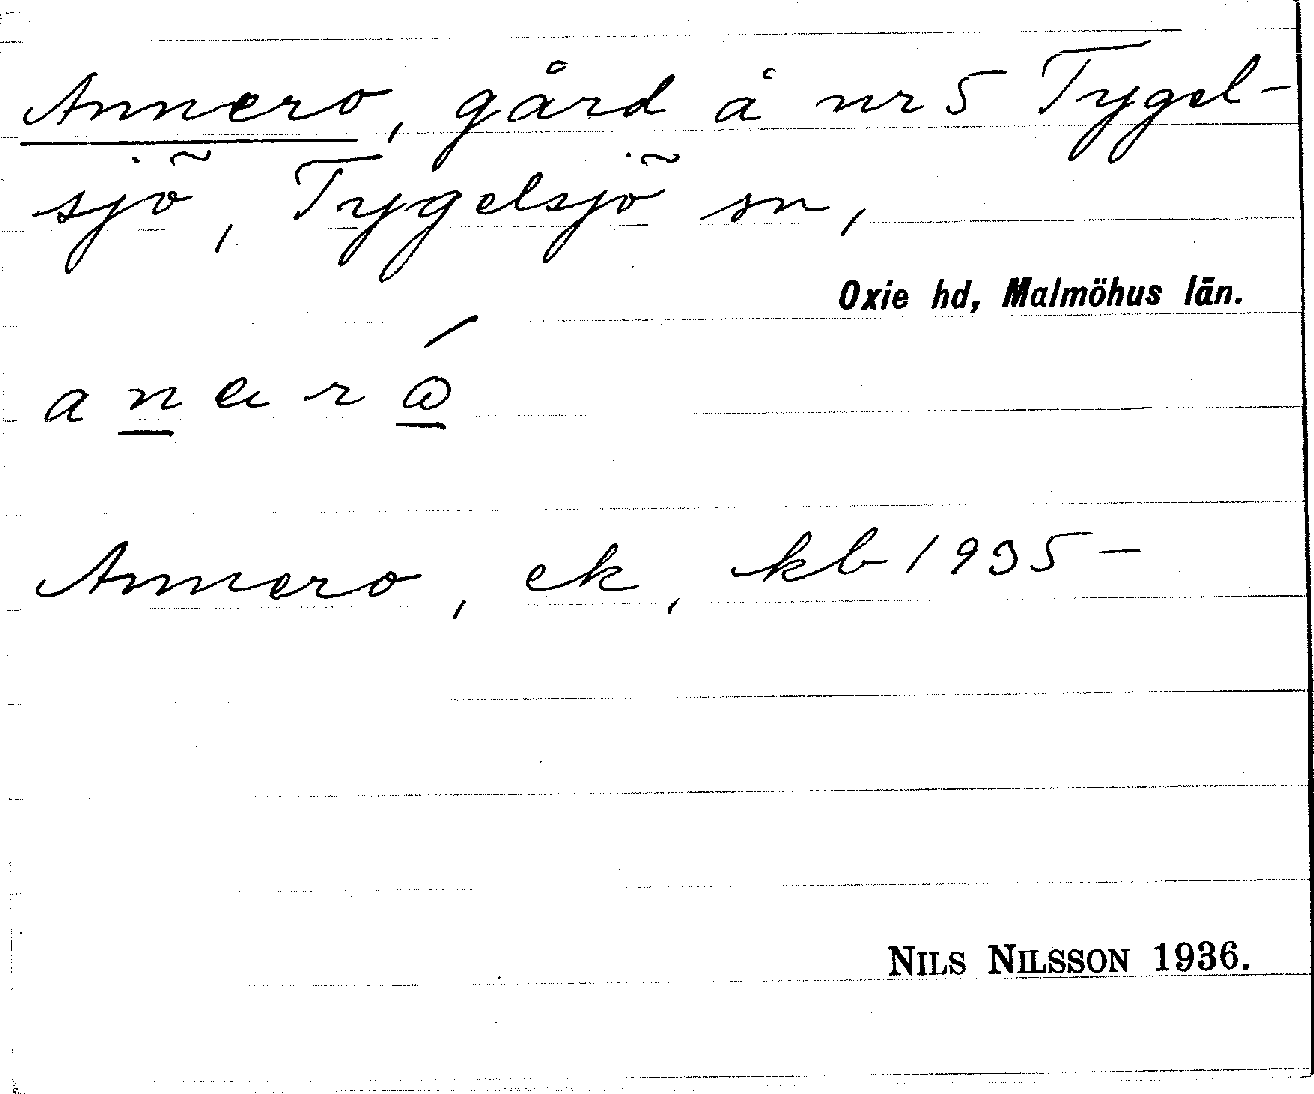 Annero, gård å nr 5 Tygel-
sjö, Tygelsjö sn,
Oxie hd, Malmöhus län.
Annero, ek, kb 1935–
NILS NILSSON 1936.